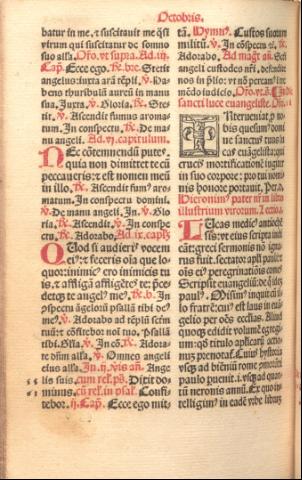 Octobris.
batur in me, ⁊ suscitauit me q̃si
virum qui suscitatur de somno
suo alľa. Oro. vt supra. Ad .iij.
Cap. Ecce ego. ℟. bre. Stetit
angelus iuxta arā tẽpli. ℣. Ha-
bens thuribulũ aureũ in manu
sua. Juxta. ℣. Gloria. ℟. Ste-
tit. ℣. Ascendit fumus aroma-
tum. In conspectu dñi. ℟. De ma-
nu angeli. Ad .vj. capitulum.
Nec cõtemnendũ putes,
quia non dimittet te cũ
peccaueris: ⁊ est nomen meũ
in illo. ℟. Ascendit fum9 aro-
matum. In conspectu domini.
℣. De manu angeli. In. ℣. Glo-
ria. ℟. Ascendit. ℣. In conspe-
ctu. ℟. Adorabo. Ad .ix. capľm
Quod si audieris vocem
ei9: ⁊ feceris oĩa que lo-
quor: inimic9 ero inimicis tu
is, ⁊ affligã affligẽtes te: p̃ce-
detq̃ te angel9 me9. ℟. b. In
cõspectu ãgeloꝝ psallã tibi de9
me9. ℣. Adorabo ad tẽplũ sctm̃
tuũ: ⁊ cõfitebor noĩ tuo. Psallã
tibi. Gľia. ℣. In cõ. ℟. Ado-
rate dñm alľa. ℣. Omnes angeli
eius alľa. In .ij. v̄is añ. Ange-
lis suis. cum reľ. p̃s. Dixit do-
minus. cũ reľ. in psaľ. Confi-
tebor. ij. Cap. Ecce ego mit-
tã. Hymn9. Custos suorum
militũ. ℣. In cõspectu ⁊c. ℟.
Adorabo. Ad magr̃ añ. Seri
angeli custodes nr̃i, defende
nos in p̃lio: vt nõ pereamus in tre
mẽdo iudicio. Oro. vt. s. In die
sancti luce euangeliste. Oro.
Interueniat p̃ no-
bis quesum9 domi
ne sanctus tuus lu
cas euãgelista: qui
crucis mortificationẽ iugiter
in suo corpore: pro tui nomi
nis honore portauit. Per.
Hieronim9 pater nr̃ in lib̃
illustrium virorum. Lectio. j.
Lucas medic9 antioche
sis: vt eius scripta indi
cãt: greci sermonis nõ igna-
rus fuit. sectator apľi pauli: ⁊
oĩs ei9 peregrinatiõis comes.
Scripsit euangeliũ: de q̃ idẽ
paul9. Misim9 inquit cũ il-
lo fratrẽ: cui9 est laus in euã-
gelio per oẽs ecclias. Aliud
quoq̃ edidit volumẽ egregi-
um: qd̃ titulo apľicarũ actio-
num p̃notaf. Cui9 hystoria
vsq̃ ad biẽniũ rome p̃morãtis
paulo p̃uenit. i. vsq̃ ad quar-
tũ neronis annũ. Ex quo in-
telligim9 in eadẽ vrbe librũ